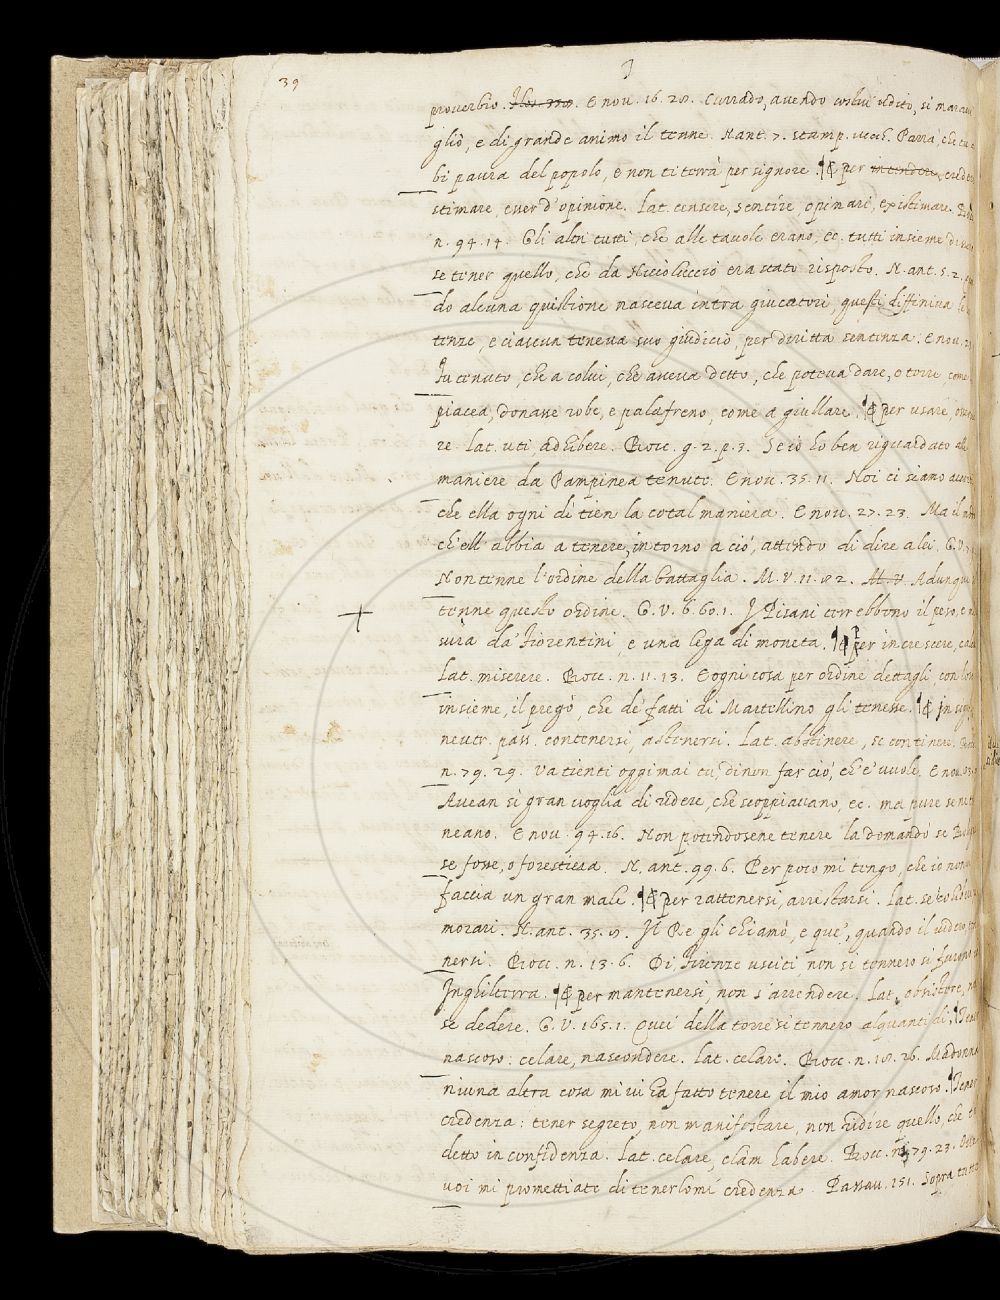 39
prouerbio. E nou. 16. 28. Currado, auendo costui udito, si marau
gliò, e di grande animo il tenne. N. ant. 7. stamp. vecch. Parrà, che tu a
bi paura del popolo, e non ti terrà per signore. ¶ E per intendere, creder
stimare, esser d'opinione. Lat. censere, sentire, opinari, existimare. Bocc
n. 94. 14. Gli altri tutti, che alle tauole erano, ec. tutti insieme disser
se tener quello, che da Niccoluccio era stato risposto. N. ant. 5. 2.
do alcuna quistione nasceua intra giucatori, questi diffiniua le
tenze, e ciascun teneua suo giudicio, per diritta sentenza. E nou. 2
Fu tenuto, che a colui, che aueua detto, che poteua dare, o torre, come
piacea, donasse robe, e palafreno, come a giullare. ¶ E per usare, osserua
re. Lat. uti, adhibere. Bocc. g. 2. p. 3. Se io ho ben riguardato alle
maniere da Pampinea tenute. E nou. 35. 11. Noi ci siamo
che ella ogni dì tien la cotal maniera. E nou. 27. 23. Ma il
ch'ell' abbia a tenere, intorno a ciò, attendo di dire a lei. G. V.
Non tenne l'ordine della battaglia. M. V. 11. 82. M. V. Adunque
tenne questo ordine. G. V. 6. 60. 1. I Pisani terrebbono il peso, e
sura da' Fiorentini, e una lega di moneta. ¶ E per increscere,
Lat. miserere. Bocc. n. 11. 13. E ogni cosa per ordine dettagli, con loro
insieme, il pregò, che de' fatti di Martellino gli tenesse. ¶ E in
neutr. pass. contenersi, astenersi. Lat. abstinere, se continere. Bocc
n. 79. 29. Va tienti oggimai tu, di non far ciò, ch'e' uuole. E nou.
Auean sì gran uoglia di ridere, che scoppiauano, ec. ma pure se ne te
neano. E nou. 94. 16. Non potendosene tenere la domandò se Bolo
se fosse, o forestiera. N. ant. 99. 6. Per poco mi tengo, che io non
faccia un gran male. ¶ E per rattenersi, arrestarsi. Lat. se
morari. N. ant. 35. 8. Il Re gli chiamò, e que', quando il uidero,
nersi. Bocc. n. 13. 6. Di Firenze usciti non si tennero sì furono in
Inghilterra. ¶ E per mantenersi, non s'arrendere. Lat. obsistere,
se dedere. G. V. 165. 1. Quei della torre si tennero alquanti dì. ¶ Tener
nascoso: celare, nascondere. Lat. celare. Bocc. n. 18. 26. Madonna
niuna altra cosa mi ui ha fatto tenere il mio amor nascoso. ¶ Tener
credenza: tener segreto, non manifestare, non ridire quello, che t'è
detto in confidenza. Lat. celare, clam habere. Bocc. n. 79. 23.
uoi mi promettiate di tenerlomi credenza. Passau. 151. Sopra tutto